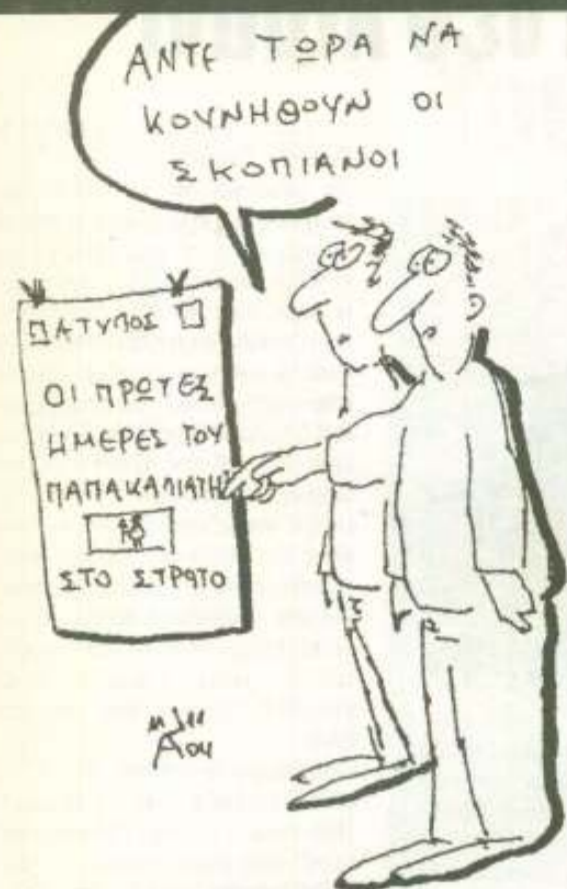 ΑΝΤΕ ΤΩΡΑ ΝΑ
ΚΟΥΝΗΘΟΥΝ ΟΙ
ΣΚΟΠΙΑΝΟΙ
ΠΑΤΥΠΟΣ
ΟΙ ΠΡΩΤΕΣ
ΗΜΕΡΕΣ ΤΟΥ
ΠΑΠΑΚΑΛΙΑΤΗ
ΣΤΟ ΣΤΡΑΤΟ